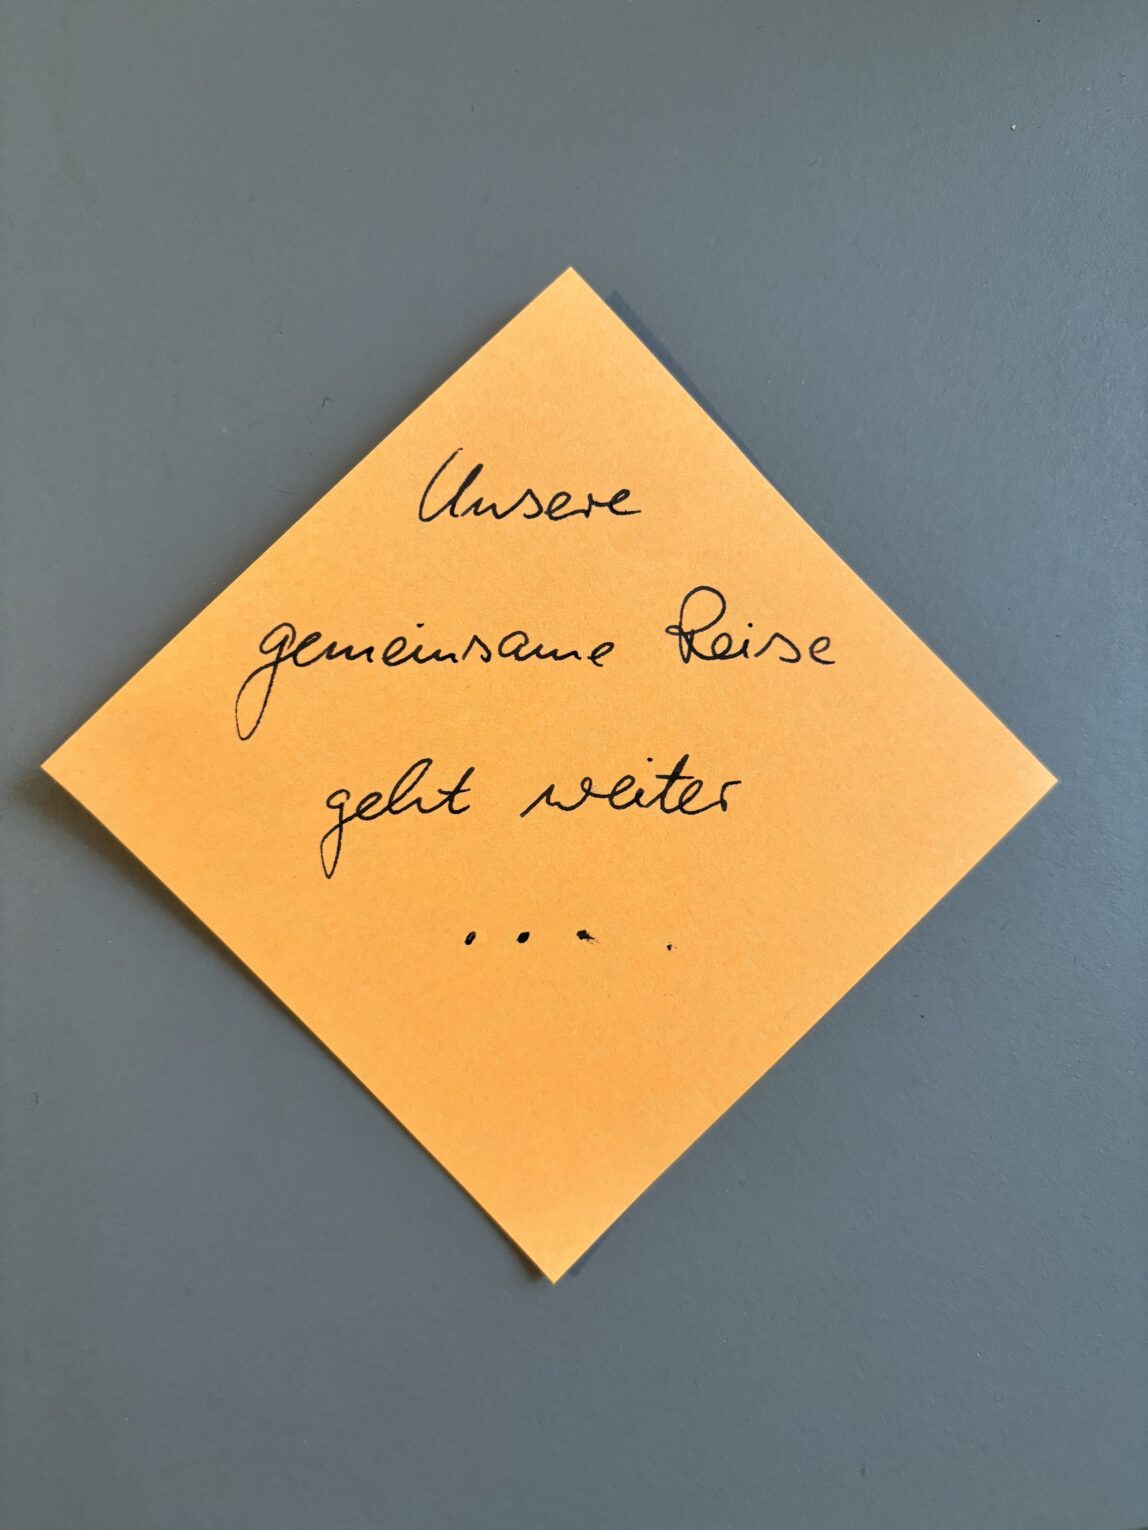 Unsere
gemeinsame Reise
geht weiter
....